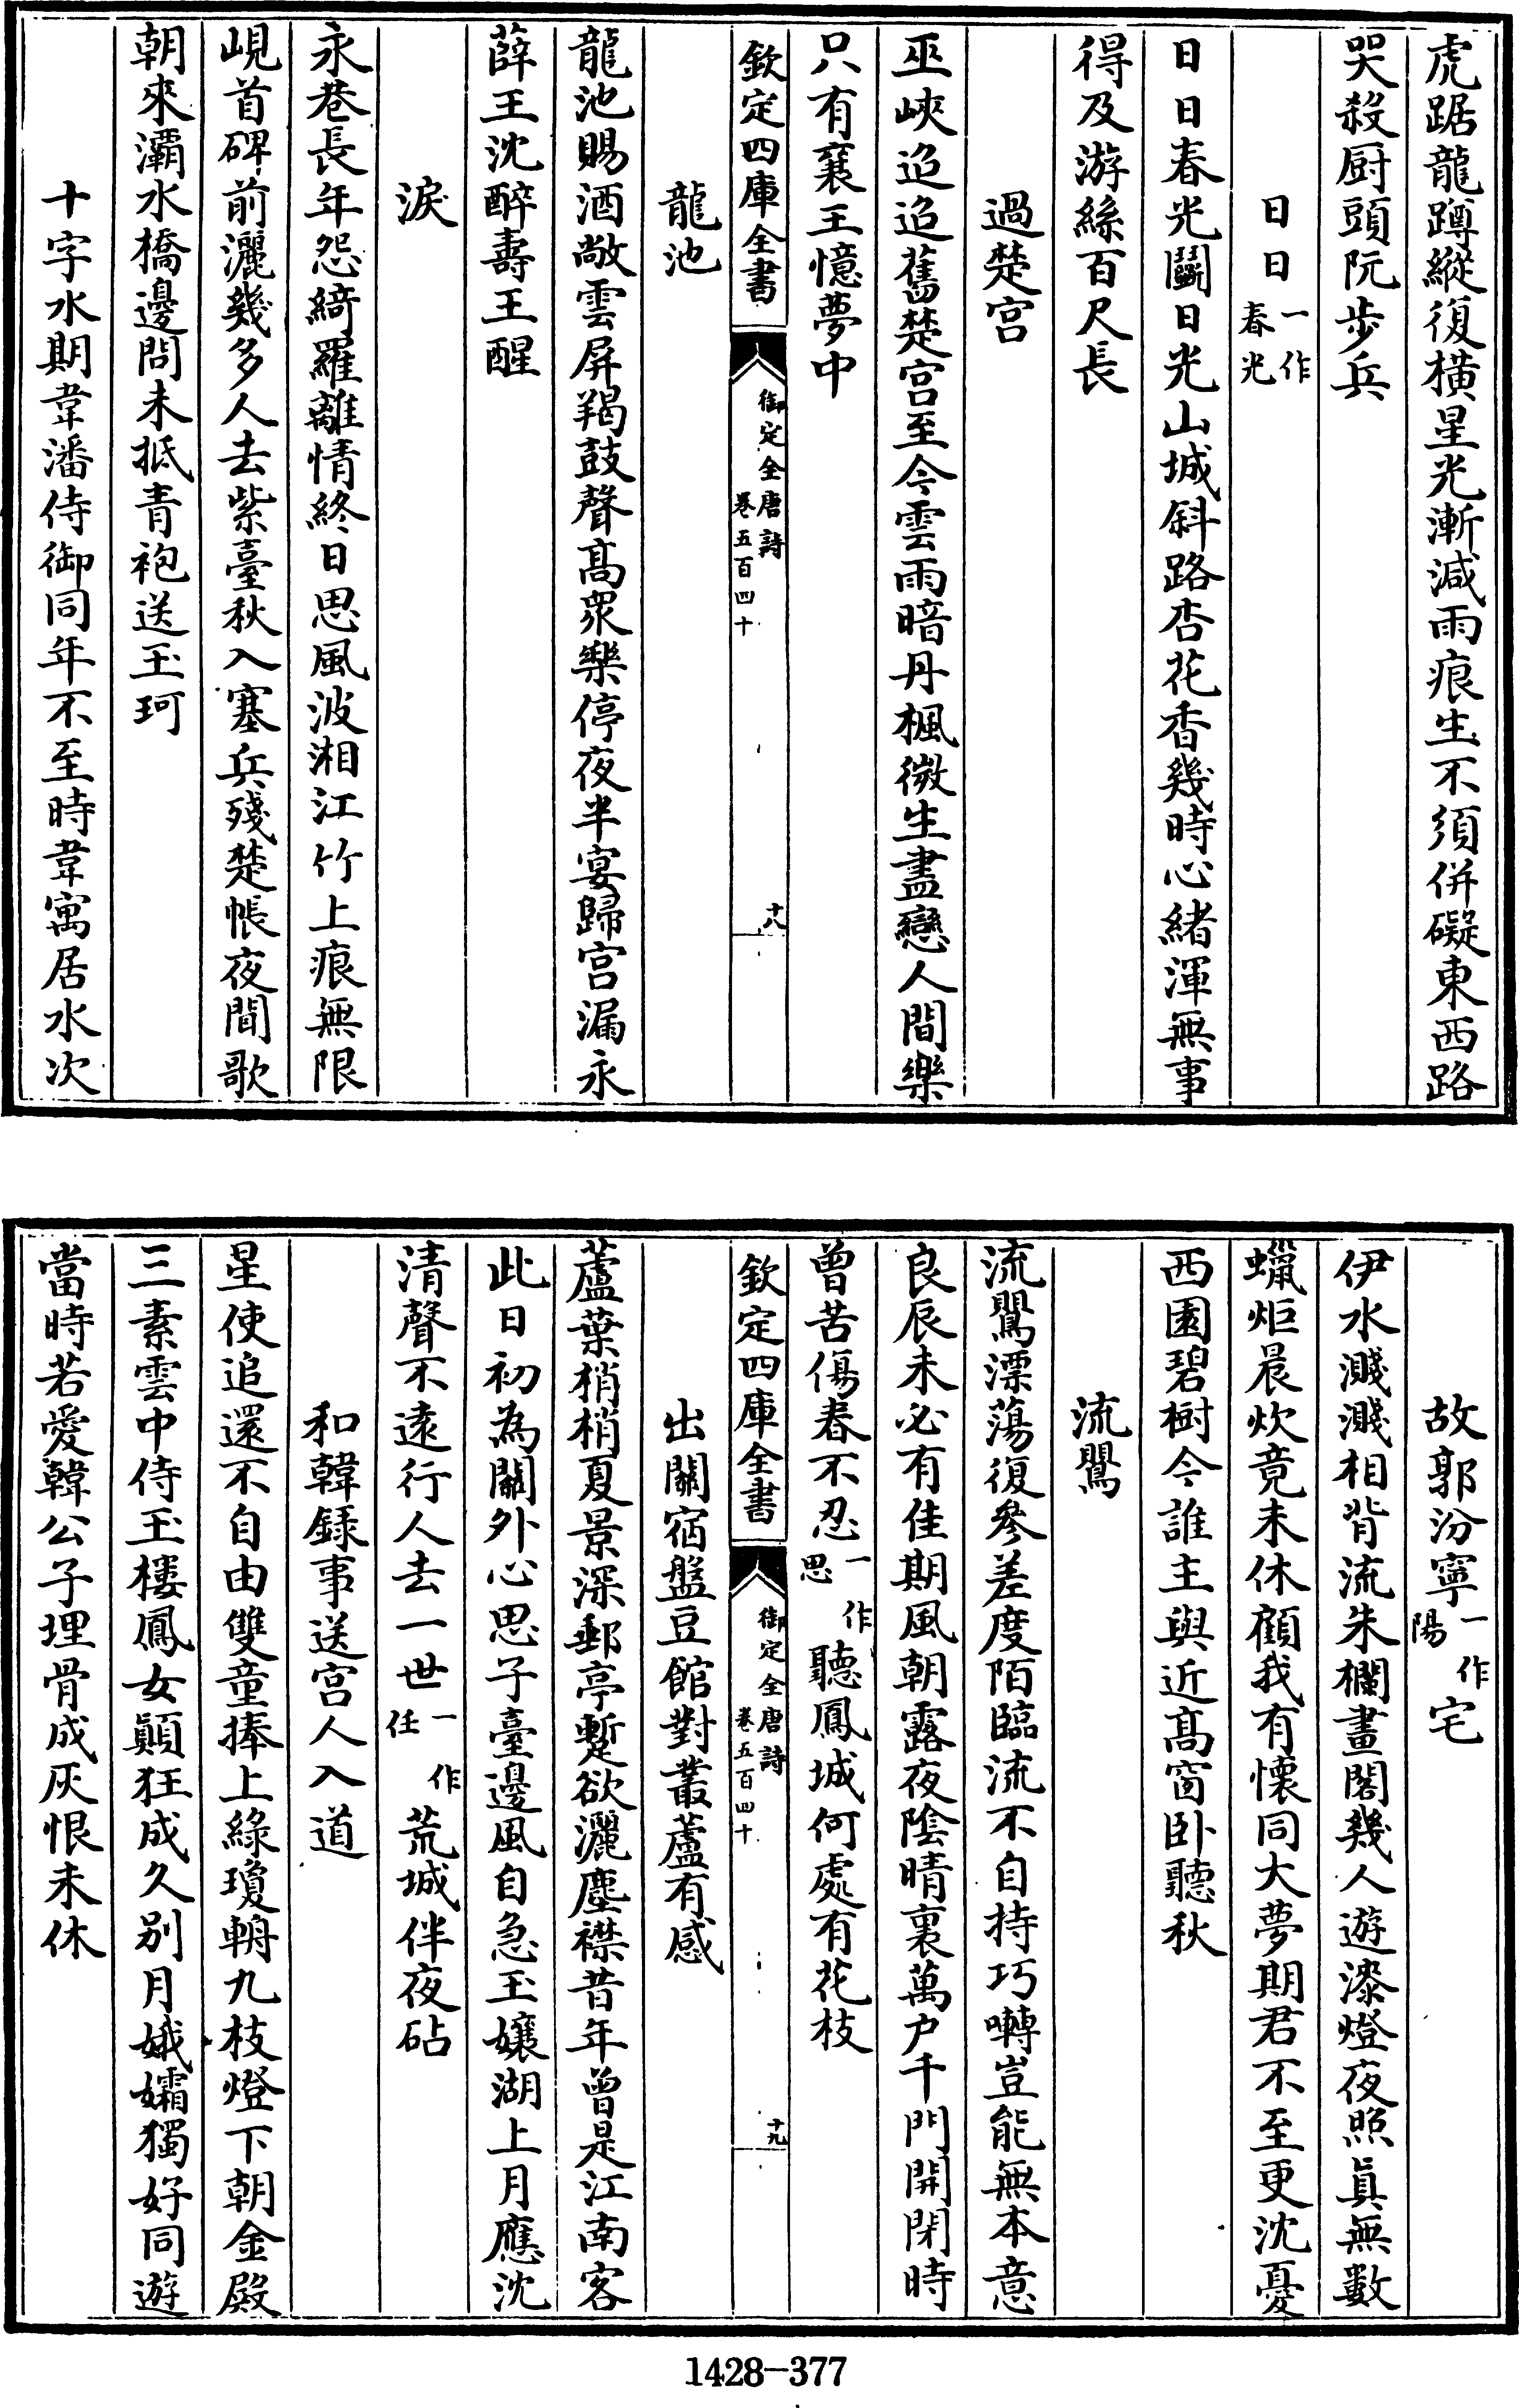 虎踞龍蹲縱復橫星光漸減雨痕生不須併礙東西路
哭殺厨頭阮步兵
日日一作春光
日日春光鬭日光山城斜路杏花香幾時心緒渾無事
得及游絲百尺長
過楚宫
巫峽迢迢舊楚宫至今雲雨暗丹楓微生盡戀人間樂
只有襄王憶夢中
欽定四庫全書
御定全唐詩
卷五百四十
十八
龍池
龍池賜酒敞雲屏羯鼓聲髙衆樂停夜半宴歸宫漏永
薛王沈醉壽王醒
淚
永巷長年怨綺羅離情終日思風波湘江竹上痕無限
峴首碑前灑幾多人去紫臺秋入塞兵殘楚帳夜聞歌
朝來灞水橋邊問未抵青袍送玉珂
十字水期韋潘侍御同年不至時韋寓居水次
故郭汾寧一作陽宅
伊水濺濺相背流朱欄畫閣幾人遊漆燈夜照真無數
蠟炬晨炊竟未休顧我有懷同大夢期君不至更沈憂
西園碧樹今誰主與近髙窗卧聽秋
流鶯
流鶯漂蕩復參差度陌臨流不自持巧囀豈能無本意
良辰未必有佳期風朝露夜陰晴裏萬户千門開閉時
曾苦傷春不忍一作思聽鳳城何處有花枝
欽定四庫全書
御定全唐詩
卷五百四十
十九
出關宿盤豆館對叢蘆有感
蘆葉梢梢夏景深郵亭蹔欲灑塵襟昔年曾是江南客
此日初為關外心思子臺邊風自急玉孃湖上月應沈
清聲不逺行人去一世一作任荒城伴夜砧
和韓録事送宫人入道
星使追還不自由雙童捧上綠瓊輈九枝燈下朝金殿
三素雲中侍玉樓鳳女顛狂成久别月娥孀獨好同遊
當時若愛韓公子埋骨成灰恨未休
1428-377